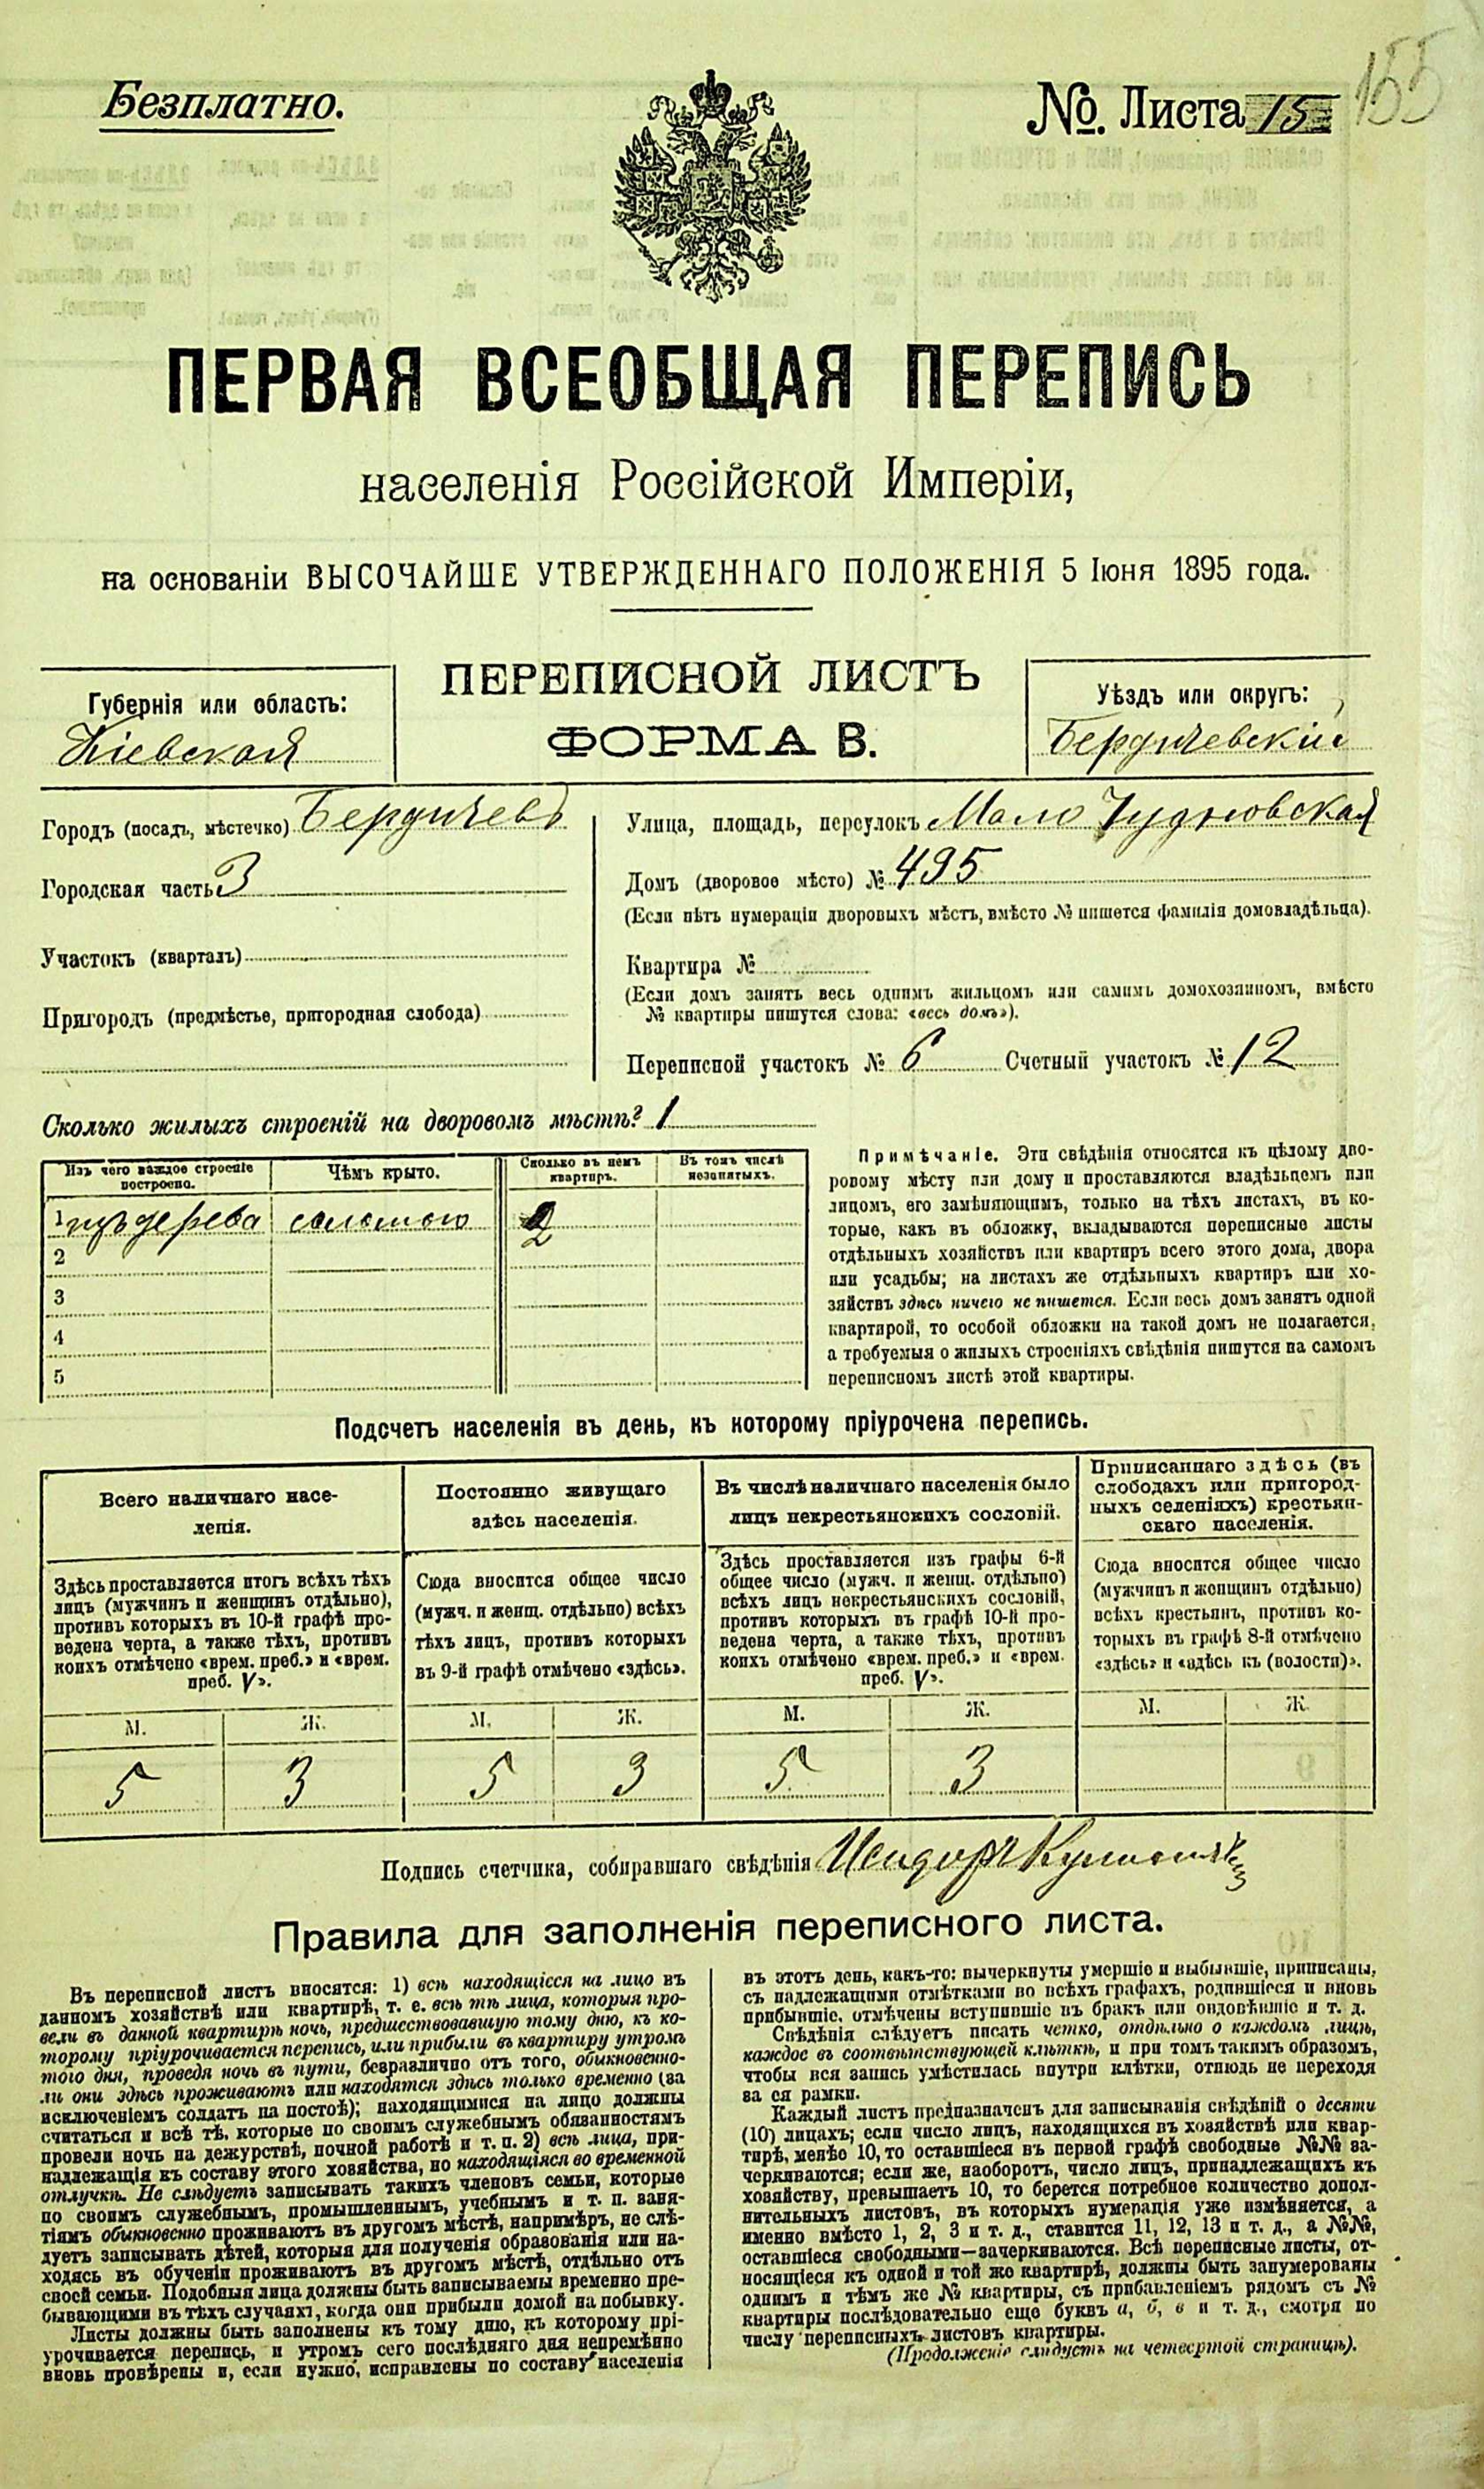 Безплатно.
№. Листа 15
155
ПЕРВАЯ ВСЕОБЩАЯ ПЕРЕПИСЬ
населенія Россійской Имперіи,
на основаніи ВЫСОЧАЙШЕ УТВЕРЖДЕННАГО ПОЛОЖЕНІЯ 5 Іюня 1895 года.
ПЕРЕПИСНОЙ ЛИСТЪ
ФОРМА В.
Губернія или область:
Кіевская
Уѣздъ или округъ:
Бердичевскій
Городъ (посадъ, мѣстечко) Бердичевъ
Городская часть 3
Участокъ (кварталъ)
Пригородъ (предмѣстье, пригородная слобода)
Улица, площадь, переулокъ Мало Чудновская
Домъ (дворовое мѣсто) № 495
(Если нѣтъ нумераціи дворовыхъ мѣстъ, вмѣсто № пишется фамилія домовладѣльца).
Квартира №
(Если домъ занятъ весь однимъ жильцомъ или самимъ домохозяиномъ, вмѣсто
№ квартиры пишутся слова: «весь домъ»).
Переписной участокъ № 6 Счетный участокъ № 12
Сколько жилыхъ строеній на дворовомъ мѣстѣ? 1
Изъ чего каждое строеніе
построено.
Чѣмъ крыто.
Сколько въ немъ
квартиръ.
Въ томъ числѣ
незанятыхъ.
1 изъ дерева соломою 2
2
3
4
5
Примѣчаніе. Эти свѣдѣнія относятся къ цѣлому дво-
ровому мѣсту или дому и проставляются владѣльцемъ или
лицомъ, его замѣняющимъ, только на тѣхъ листахъ, въ ко-
торые, какъ въ обложку, вкладываются переписные листы
отдѣльныхъ хозяйствъ или квартиръ всего этого дома, двора
или усадьбы; на листахъ же отдѣльныхъ квартиръ или хо-
зяйствъ здѣсь ничего не пишется. Если весь домъ занятъ одной
квартирой, то особой обложки на такой домъ не полагается,
а требуемыя о жилыхъ строеніяхъ свѣдѣнія пишутся на самомъ
переписномъ листѣ этой квартиры.
Подсчетъ населенія въ день, къ которому пріурочена перепись.
Всего наличнаго насе-
ленія.
Здѣсь проставляется итогъ всѣхъ тѣхъ
лицъ (мужчинъ и женщинъ отдѣльно),
противъ которыхъ въ 10-й графѣ про-
ведена черта, а также тѣхъ, противъ
коихъ отмѣчено «врем. преб.» и «врем.
преб. V».
Постоянно живущаго
здѣсь населенія.
Сюда вносится общее число
(мужч. и женщ. отдѣльно) всѣхъ
тѣхъ лицъ, противъ которыхъ
въ 9-й графѣ отмѣчено «здѣсь».
Въ числѣ наличнаго населенія было
лицъ некрестьянскихъ сословій.
Здѣсь проставляется изъ графы 6-й
общее число (мужч. и женщ. отдѣльно)
всѣхъ лицъ некрестьянскихъ сословій,
противъ которыхъ въ графѣ 10-й про-
ведена черта, а также тѣхъ, противъ
коихъ отмѣчено «врем. преб.» и «врем.
преб. V».
Приписаннаго здѣсь (въ
слободахъ или пригород-
ныхъ селеніяхъ) крестьян-
скаго населенія.
Сюда вносится общее число
(мужчинъ и женщинъ отдѣльно)
всѣхъ крестьянъ, противъ ко-
торыхъ въ графѣ 8-й отмѣчено
«здѣсь» и «здѣсь къ (волости)».
М. Ж. М. Ж. М. Ж. М. Ж.
5 3 5 3 5 3
Подпись счетчика, собиравшаго свѣдѣнія Исидоръ
Правила для заполненія переписного листа.
Въ переписной листъ вносятся: 1) всѣ находящіеся на лицо въ
данномъ хозяйствѣ или квартирѣ, т. е. всѣ тѣ лица, которыя про-
вели въ данной квартирѣ ночь, предшествовавшую тому дню, къ ко-
торому пріурочивается перепись, или прибыли въ квартиру утромъ
того дня, проведя ночь въ пути, безразлично отъ того, обыкновенно-
ли они здѣсь проживаютъ или находятся здѣсь только временно (за
исключеніемъ солдатъ на постоѣ); находящимися на лицо должны
считаться и всѣ тѣ, которые по своимъ служебнымъ обязанностямъ
провели ночь на дежурствѣ, ночной работѣ и т. п. 2) всѣ лица, при-
надлежащія къ составу этого хозяйства, но находящіяся во временной
отлучкѣ. Не слѣдуетъ записывать такихъ членовъ семьи, которые
по своимъ служебнымъ, промышленнымъ, учебнымъ и т. п. заня-
тіямъ обыкновенно проживаютъ въ другомъ мѣстѣ, напримѣръ, не слѣ-
дуетъ записывать дѣтей, которыя для полученія образованія или на-
ходясь въ обученіи проживаютъ въ другомъ мѣстѣ, отдѣльно отъ
своей семьи. Подобныя лица должны быть записываемы временно пре-
бывающими въ тѣхъ случаяхъ, когда они прибыли домой на побывку.
Листы должны быть заполнены къ тому дню, къ которому прі-
урочивается перепись, и утромъ сего послѣдняго дня непремѣнно
вновь провѣрены и, если нужно, исправлены по составу населенія
въ этотъ день, какъ-то: вычеркнуты умершіе и выбывшіе, приписаны,
съ надлежащими отмѣтками во всѣхъ графахъ, родившіеся и вновь
прибывшіе, отмѣчены вступившіе въ бракъ или овдовѣвшіе и т. д.
Свѣдѣнія слѣдуетъ писать четко, отдѣльно о каждомъ лицѣ,
каждое въ соотвѣтствующей клѣткѣ, и при томъ такимъ образомъ,
чтобы вся запись умѣстилась внутри клѣтки, отнюдь не переходя
за ея рамки.
Каждый листъ предназначенъ для записыванія свѣдѣній о десяти
(10) лицахъ; если число лицъ, находящихся въ хозяйствѣ или квар-
тирѣ, менѣе 10, то оставшіеся въ первой графѣ свободные №№ за-
черкиваются; если же, наоборотъ, число лицъ, принадлежащихъ къ
хозяйству, превышаетъ 10, то берется потребное количество допол-
нительныхъ листовъ, въ которыхъ нумерація уже измѣняется, а
именно вмѣсто 1, 2, 3 и т. д., ставится 11, 12, 13 и т. д., а №№,
оставшіеся свободными—зачеркиваются. Всѣ переписные листы, от-
носящіеся къ одной и той же квартирѣ, должны быть занумерованы
однимъ и тѣмъ же № квартиры, съ прибавленіемъ рядомъ съ №
квартиры послѣдовательно еще буквъ а, б, в и т. д., смотря по
числу переписныхъ листовъ квартиры.
(Продолженіе слѣдуетъ на четвертой страницѣ).